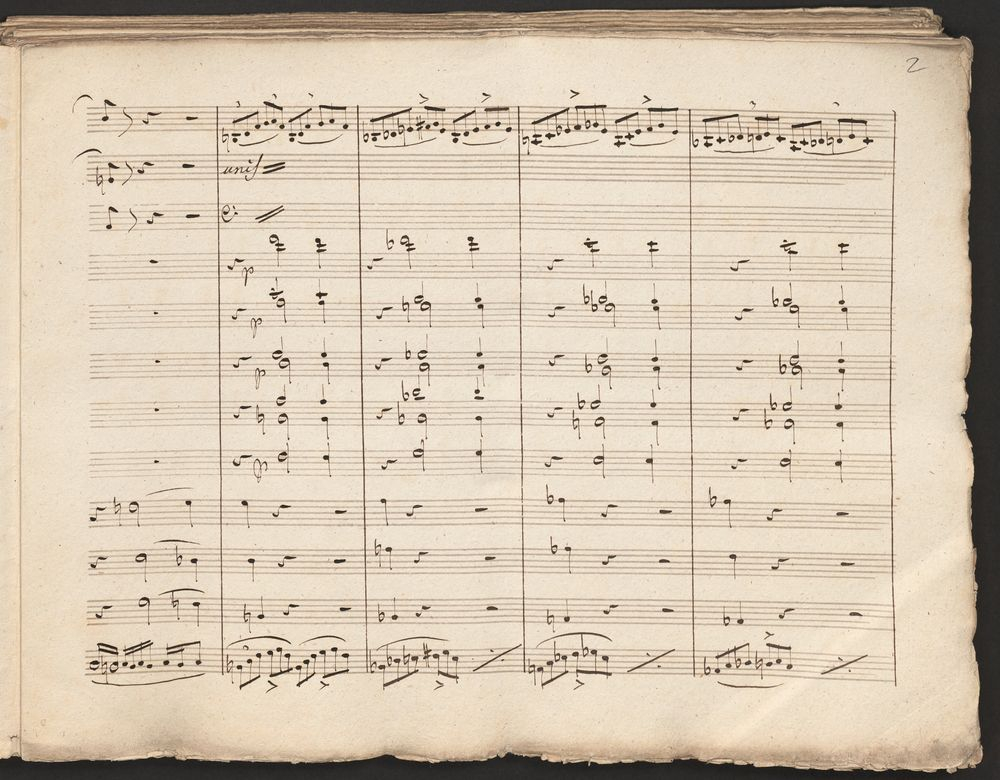 2
unis
p
p
p
p